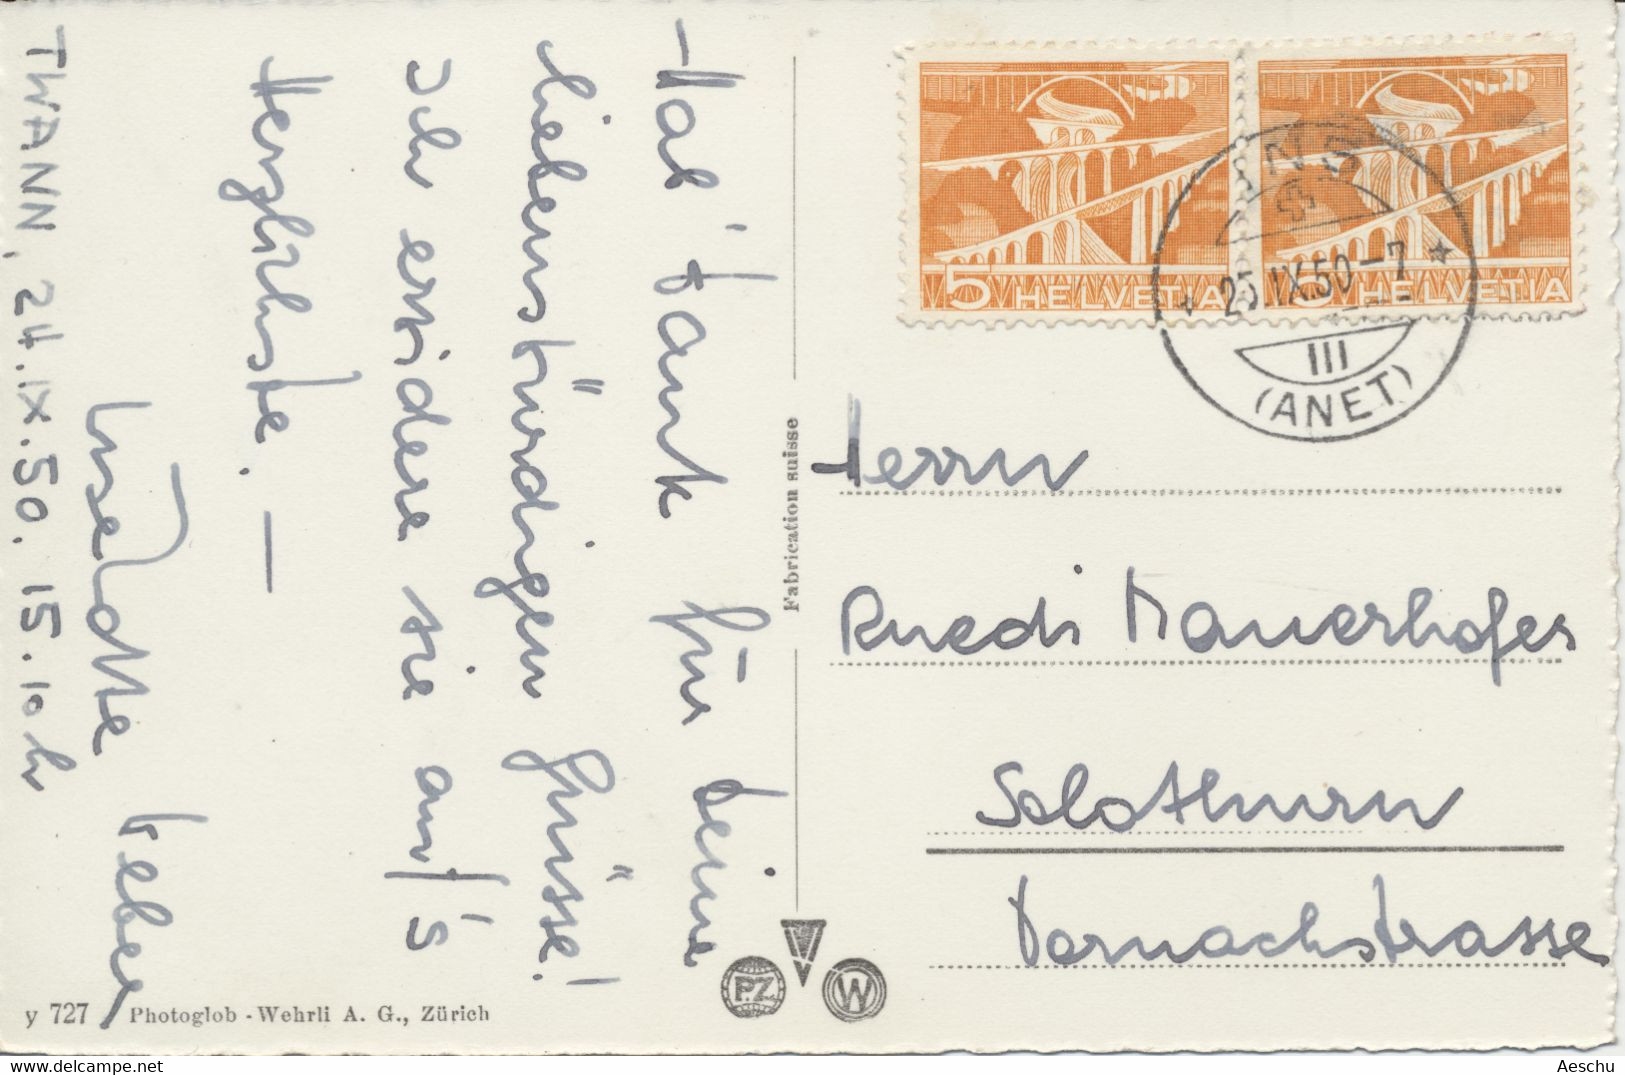 Hab' Dank für Deine
liebenswürdigen Grüsse!
Ich erwidere sie auf's
Herzlichste. —
Weber
TWANN, 24.IX.50. 15.10 h
y 727 Photoglob - Wehrli A. G., Zürich
Fabrication suisse
PZ
W
5 HELVETIA
5 HELVETIA
INS
25.IX.50-7
III
(ANET)
Herrn
Ruedi Mauerhofer
Solothurn
Dornachstrasse
Aeschu